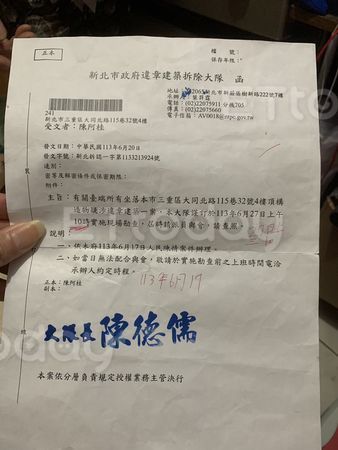 正本
檔　號：
保存年限：
新北市政府違章建築拆除大隊　函
電話：(02)22075911 分機705
傳真：(02)22075660
241
新北市三重區大同北路115巷32號4樓
受文者：陳阿桂
發文日期：中華民國113年6月20日
發文字號：新北拆認一字第1133213924號
速別：
密等及解密條件或保密期限：
附件：
主旨：有關臺端所有坐落本市三重區大同北路115巷32號4樓頂構
造物涉違章建築一案，本大隊謹訂於113年6月27日上午
10時實施現場勘查，屆時請派員與會，請查照。
說明：
一、依本府113年6月17日人民陳情案件辦理。
二、如當日無法配合與會，敬請於實施勘查前之上班時間電洽
承辦人約定時程。
正本：陳阿桂
副本：
113年6月17
大隊長 陳德儒
本案依分層負責規定授權業務主管決行
today